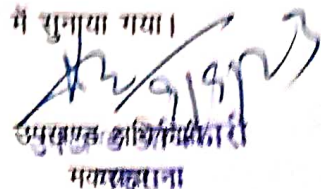 में सुनाया गया।
उपखण्ड अधिकारी
मकराना